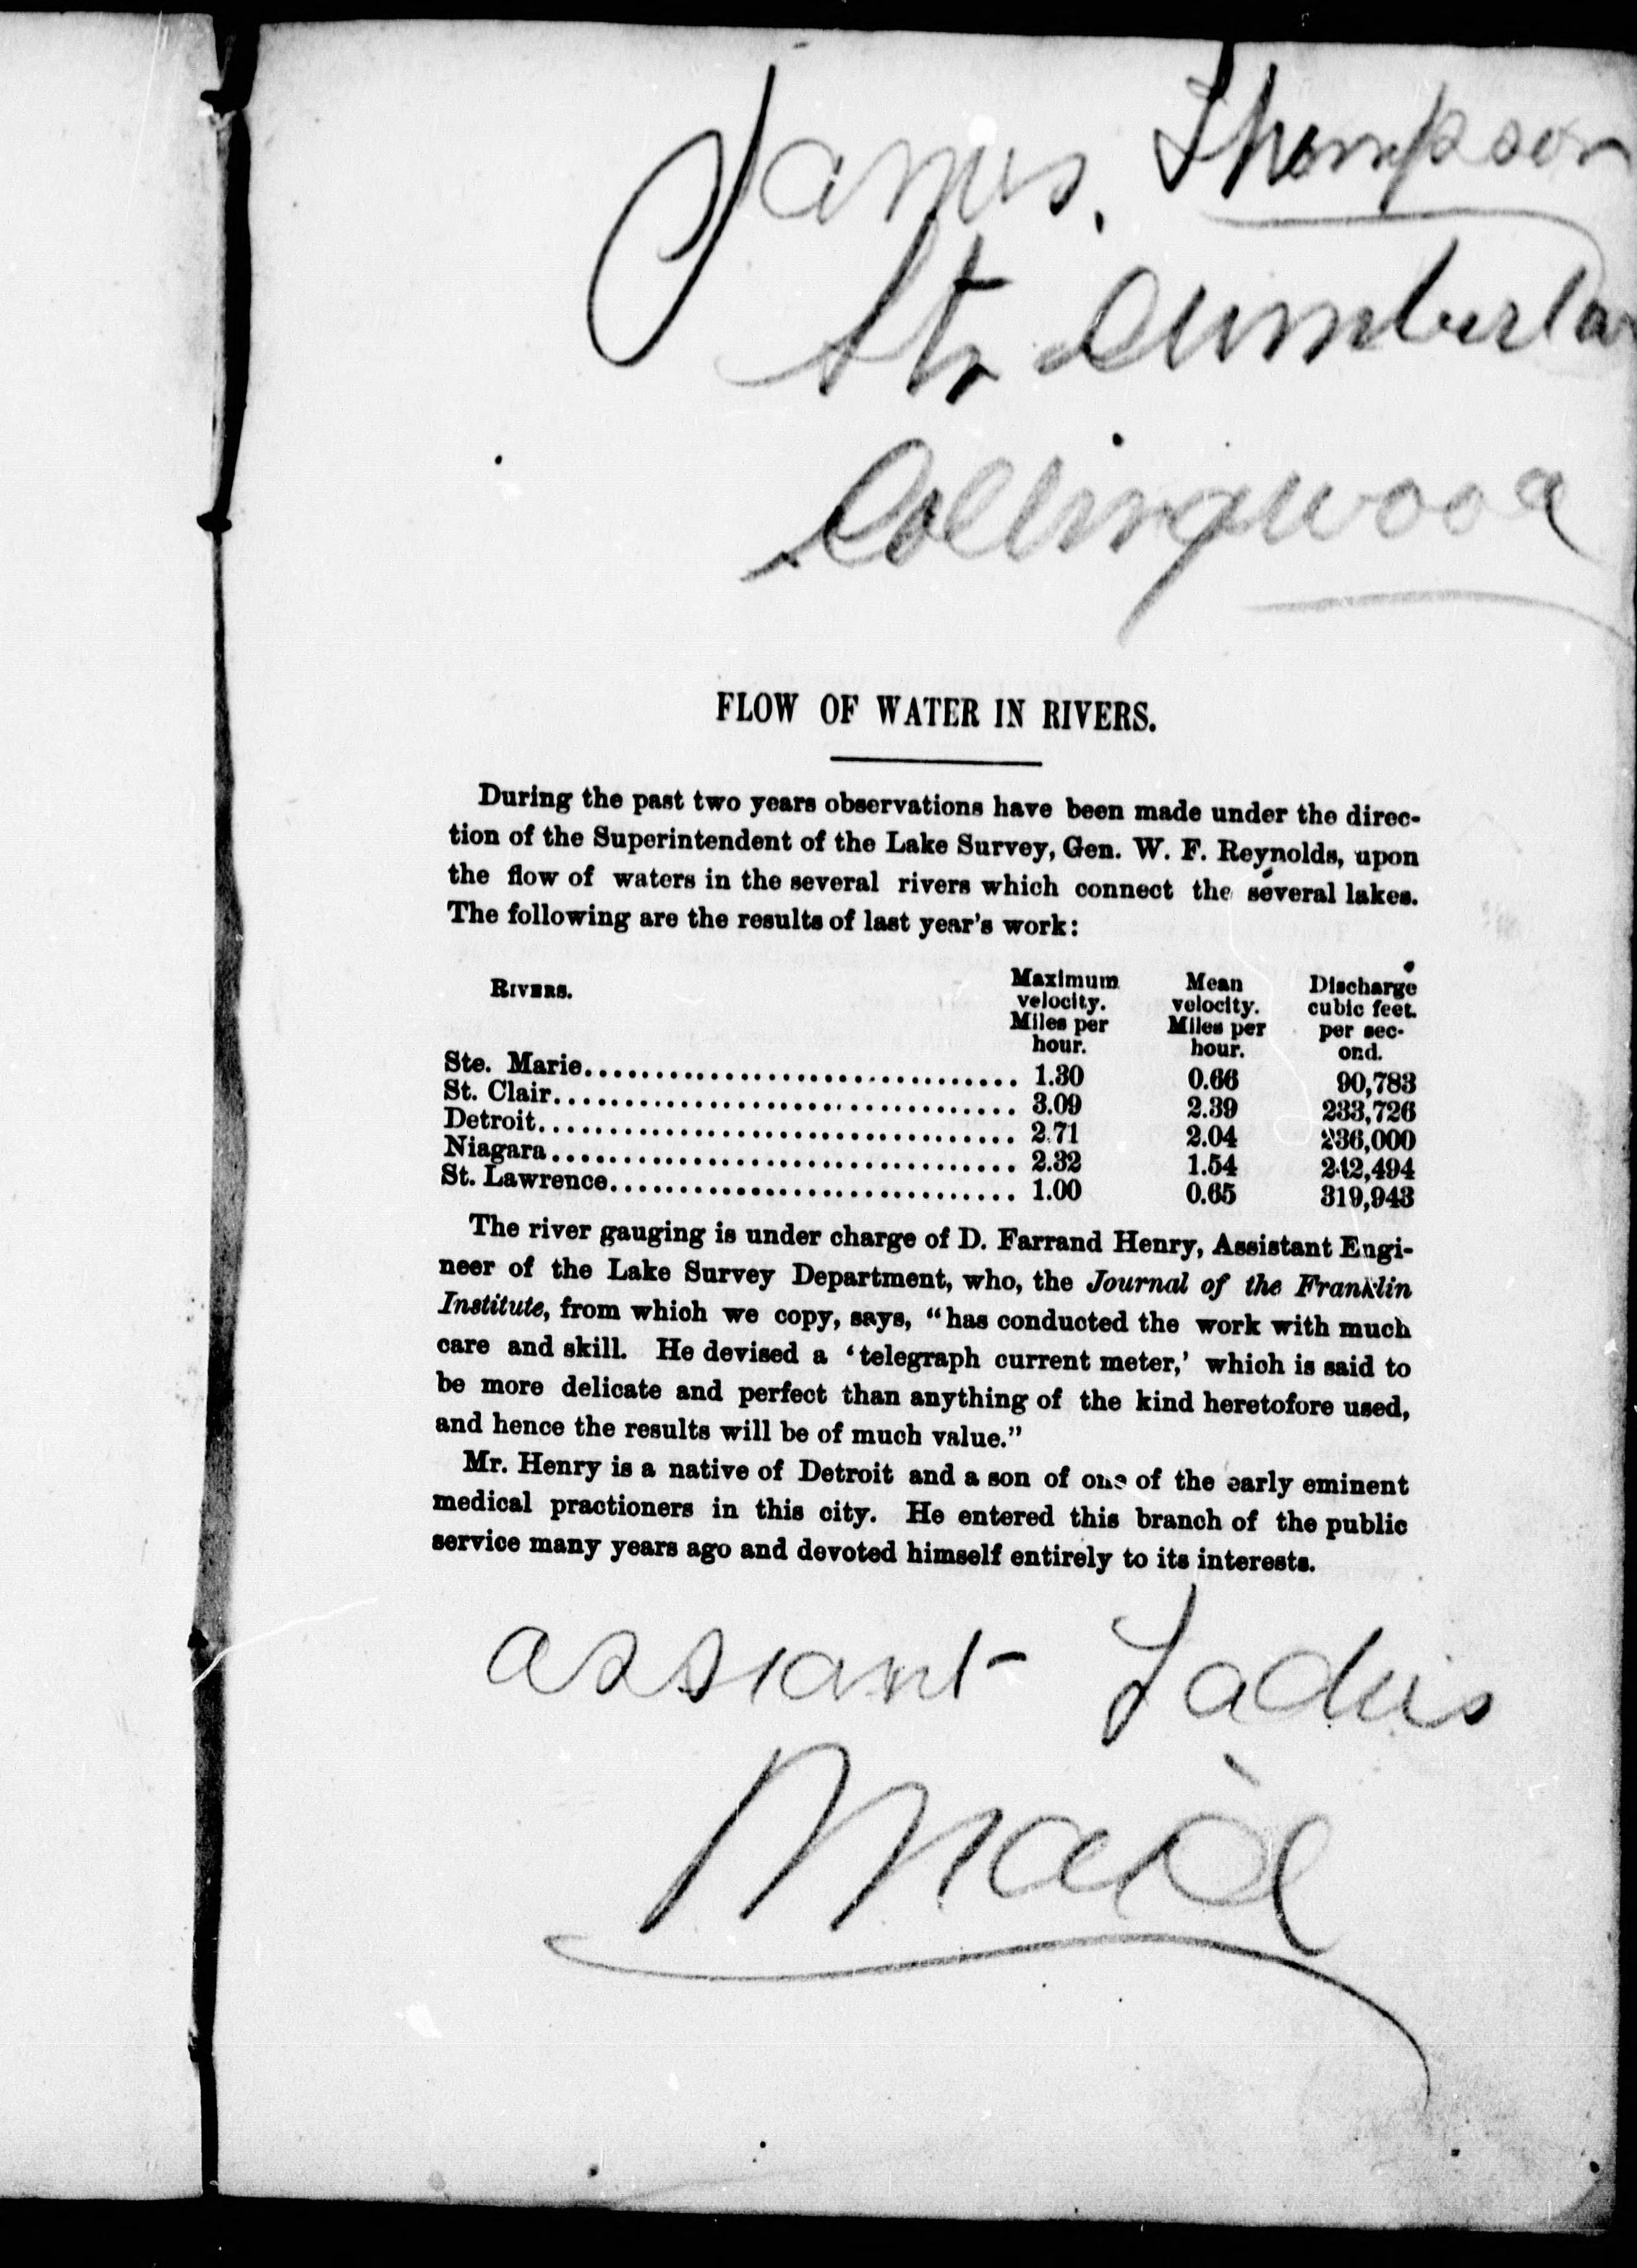 James. Thompson
Str Cumberla
Collingwood
FLOW OF WATER IN RIVERS.
During the past two years observations have been made under the direc-
tion of the Superintendent of the Lake Survey, Gen. W. F. Reynolds, upon
the flow of waters in the several rivers which connect the several lakes.
The following are the results of last year's work:
RIVERS. Maximum velocity. Miles per hour. Mean velocity. Miles per hour. Discharge cubic feet. per sec- ond.
Ste. Marie................................ 1.30 0.66 90,783
St. Clair.................................. 3.09 2.39 233,726
Detroit................................... 2.71 2.04 236,000
Niagara.................................. 2.32 1.54 242,494
St. Lawrence.............................. 1.00 0.65 319,943
The river gauging is under charge of D. Farrand Henry, Assistant Engi-
neer of the Lake Survey Department, who, the Journal of the Franklin
Institute, from which we copy, says, "has conducted the work with much
care and skill. He devised a 'telegraph current meter,' which is said to
be more delicate and perfect than anything of the kind heretofore used,
and hence the results will be of much value."
Mr. Henry is a native of Detroit and a son of one of the early eminent
medical practioners in this city. He entered this branch of the public
service many years ago and devoted himself entirely to its interests.
assiant Ladies
Maid